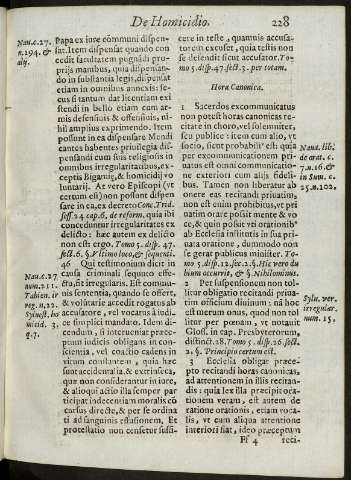 De Homicidio.
228
Nau.c.27.
n.294. &
alij.
Papa ex iure cõmuni dispen-
sat. Item dispensat quando con
cedit facultatem pugnãdi pro-
prijs manibus, quia dispensan-
do in substantia legis, dispensat
etiam in omnibus annexis: se-
cus si tantum dat licentiam exi
stendi in bello etiam cum ar-
mis defensiuis & offensiuis, ni-
hil amplius exprimendo. Item
possunt in ea dispensare Mendi
cantes habentes priuilegia dis-
pensandi cum suis religiosis in
omnibus irregularitatibus, ex-
ceptis Bigamię, & homicidij vo
luntarij. At vero Episcopi (vt
certum est) non possunt dispen
sare in ea, ex decreto Conc. Trid.
sess. 24 cap. 6. de reform. quia ibi
conceditur irregularitates ex
delicto: hæc autem ex delicto
non est ergo. Tomo 5. disp. 47.
sect. 6. §. Vltimo loco, & sequenti.
Nau.c.27
num.211.
Tabien. ir
reg. n.22.
Syluest. ho
micid. 3.
q.7.
46 Qui testimonium dicit in
causa criminali sequuto effe-
ctu, fit irregularis. Est commu-
nis sententia, quando se offert,
& voluntariè accedit rogatus ab
accusatore, vel vocatus à iudi-
ce simplici mandato. Idem di-
cendum, si interueniat præce-
ptum iudicis obligans in con-
scientia, vel coactio cadens in
virum constantem, quia hæc
sunt accidentalia, & extrinseca,
quæ non considerantur in iure,
& alioqui actio illa semper par
ticipat indecentiam moralis cõ
cursus directè, & per se ordina
ti ad sanguinis effusionem. Et
protestatio non censetur suffi-
cere in teste, quamuis accusa-
torem excuset, quia testis non
se defendit sicut accusator. To-
mo 5. disp. 47. sect. 3. per totam.
Hora Canonica.
1 Sacerdos excommunicatus
non potest horas canonicas re-
citare in choro, vel solemniter,
seu publicè: item cum alio, vt
socio, sicut probabile est: quia
per excommunicationem pri-
uatus est omni communicatio-
ne exteriori cum alijs fideli-
bus. Tamen non liberatur ab
onere eas recitandi priuatim,
non est enim prohibitus, vt pri
uatim orare possit mente & vo
ce, & quin possit vti orationibus
ab Ecclesia institutis in sua pri-
uata oratione, dummodo non
se gerat publicus minister. To-
mo 5. disp. 12. sect. 2. §. His vero du
bium occurrit, & §. Nihilominus.
Naua. lib.
de orat. c.
7.n.16. &
in Sum. c.
25.n.102.
2 Per suspensionem non tol-
litur obligatio recitandi priua-
tim officium diuinum: nã hoc
est merum onus, quod non tol
litur per pœnam, vt notauit
Gloss. in cap. Presbyterorum,
distinct. 28. Tomo 5. disp. 26. sect.
2. §. Principio certum est.
Sylu. ver.
irregular.
num. 15.
3 Ecclesia obligat præce-
pto recitandi horas canonicas,
ad attentionem in illis recitan-
dis: quia lex illa præcipit ora-
tionem veram, est autem de
ratione orationis, etiam voca-
lis, vt cum aliqua attentione
interiori fiat, ideo præceptum
Ff 4
reci-